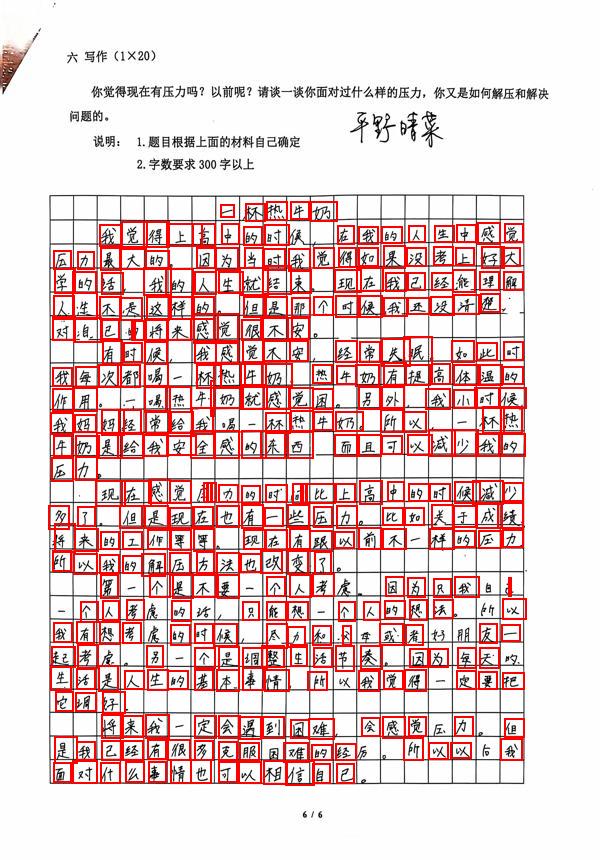 六 写作（1×20）
你觉得现在有压力吗？以前呢？请谈一谈你面对过什么样的压力，你又是如何解压和解决
问题的。
平野晴菜
说明： 1.题目根据上面的材料自己确定
2.字数要求 300 字以上
一杯热牛奶
我觉得上高中的时候，在我的人生中感觉
压力最大的。因为当时我觉得如果没考上好大
学的话，我的人生就结束。现在我已经能理解
人生不是这样的。但是那个时候我还没清楚，
对自己的将来感觉很不安。
有时候，我感觉不安，经常失眠，如此时
我每次都喝一杯热牛奶。热牛奶有提高体温的
作用。一喝热牛奶就感觉困。另外，我小时候
我妈妈经常给我喝一杯热牛奶。所以，一杯热
牛奶是给我安全感的东西，而且可以减少我的
压力。
现在感觉压力的时间比上高中的时候减少
多了。但是现在也有一些压力。比如关于成绩，
将来的工作等等。现在有跟以前不一样的压力
所以我的解压方法也改变了。
第一个是不要一个人考虑。因为只我自己
一个人考虑的话，只能想一个人的想法。所以
我有想考虑的时候，尽力和父母或者好朋友一
起考虑。另一个是调整生活节奏。因为每天的
生活是人生的基本事情，所以我觉得一定要把
它调好。
将来我一定会遇到困难，会感觉压力。但
是我已经有很多克服困难的经历。所以以后我
面对什么事情也可以相信自己。
6 / 6